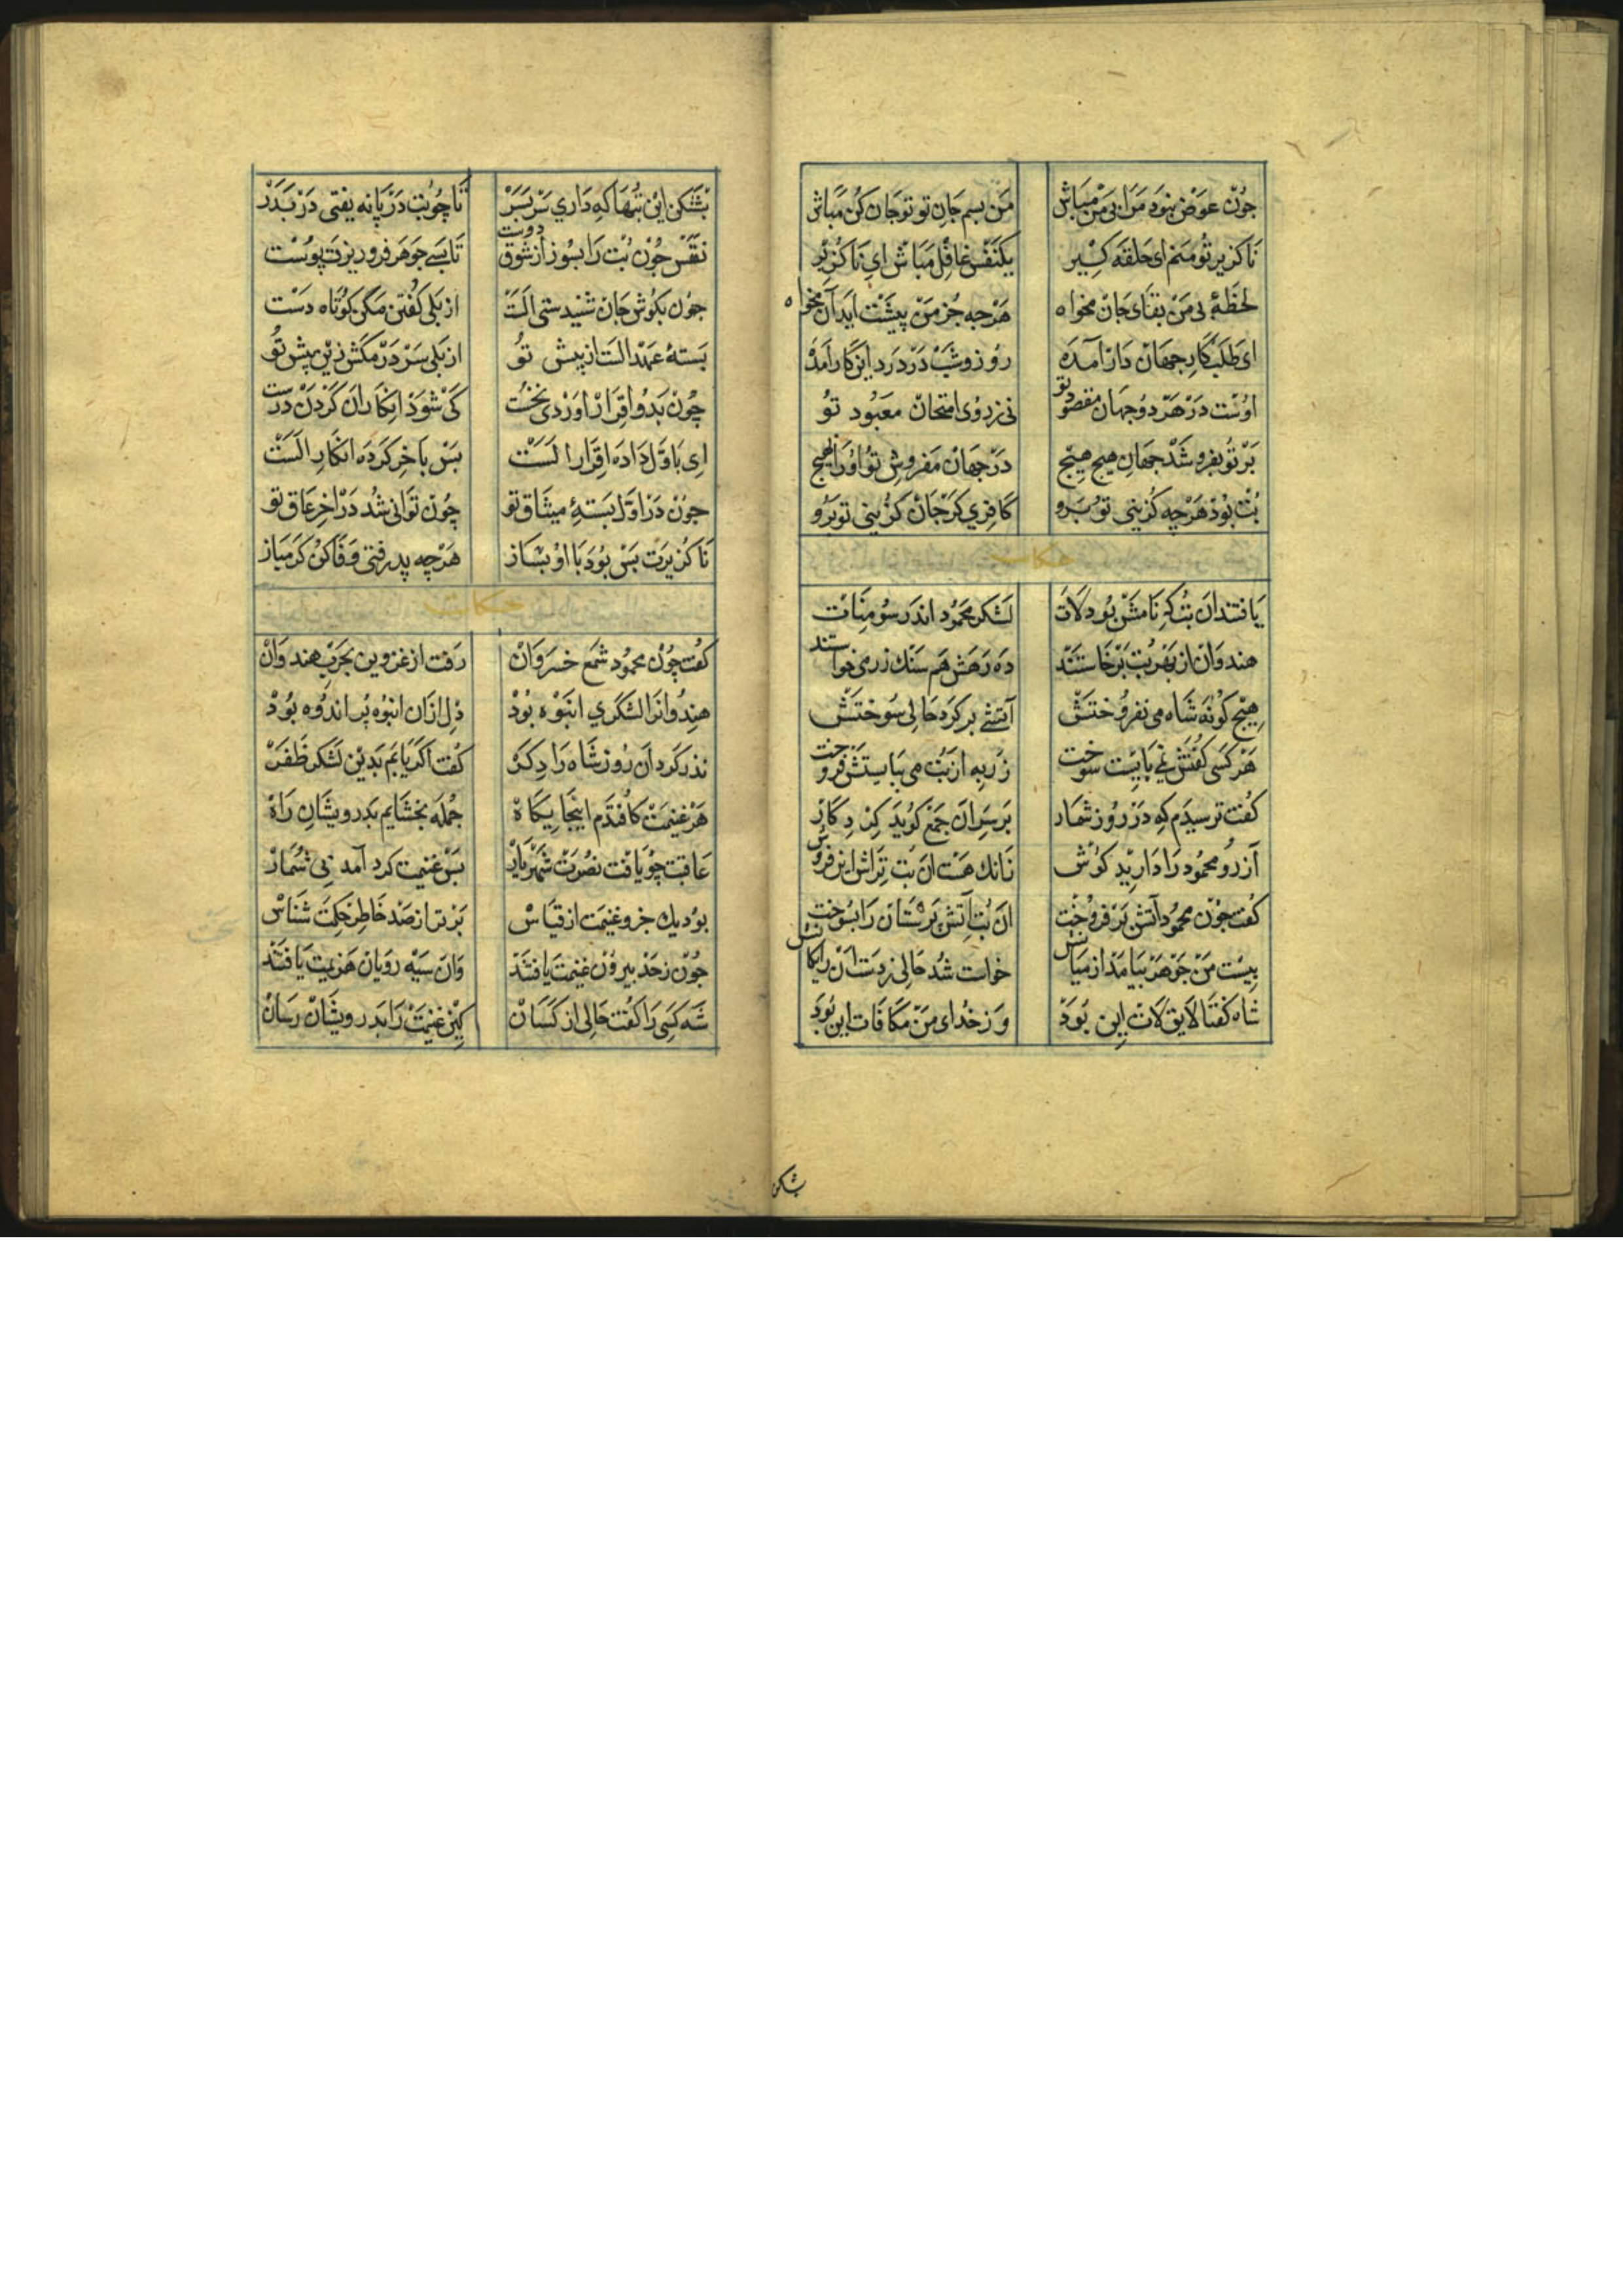 چون عوض نبود مرا بی من مباش من بسم جان تو تو جان کن مباش
ناکزیر تو منم ای حلقه کیر یکنفس غافل مباش ای ناکزیر
لحظهٔ بی من بقای جان مخواه هرجه جز من پیشت اید آن مخواه
ای طلبکار جهان دار آمده روز و شب در درد این کار آمده
اوست در هر دو جهان مقصود تو نی ز روی امتحان معبود تو
بر تو بفروشد جهان هیچ هیچ در جهان مفروش تو او را بهیچ
بت بود هرچه کزینی تو برو کافری کر جان کزینی تو برو
حکایت
یافتند ان بت که نامش بود لات لشکر محمود اندر سومنات
هندوان از بهر بت برخاستند ده رهش هم سنك زر می خواستند
هیچ کونه شاه می نفروختش آتشی بر کرد حالی سوختش
هر کسی کفتش نمی بایست سوخت زر به از بت می بایستش فروخت
کفت ترسیدم که در روز شمار بر سر ان جمع کوید کردکار
آزر و محمود را دارید کوش زانك هست ان بت تراش این فروش
کفت چون محمود آتش بر فروخت ان بت آتش پرستان را بسوخت
بیست من جوهر بیامد از میانش خواست شد حالی ز دست ان رایکانش
شاه کفتا لایق لات این بود وز خدای من مکافات این بود
بشکن
بشکن این بتها که داری سر بسر تا چو بت در پا نه یفتی در بدر
نفس چون بت را بسوز از شوق دوست تا بسی جوهر فرو ریزت پوست
چون بکوش جان شنیدستی الست از بلی کفتن مکن کوتاه دست
بستهٔ عهد الست از پیش تو از بلی سر در مکش زین پیش تو
چون بدو اقرار اوردی نخست کی شود انکار ان کردن درست
ای باول داده اقرار الست بس باخر کرده انکار الست
چون در اول بستهٔ میثاق تو چون توانی شد در اخر عاق تو
ناکزیرت بس بود با او بساز هرچه پدرفتی وفا کن کر مباز
حکایت
کفت چون محمود شمع خسروان رفت از غزوین بحرب هندوان
هندوانرا لشکری انبوه بود دل ازان انبوه پر اندوه بود
نذر کرد ان روز شاه دادکر کفت اکر یابم بدین لشکر ظفر
هر غنیمت کافتدم اینجایکاه جمله بخشایم بدرویشان راه
عاقبت چو یافت نصرت شهریار بس غنیمت کرد آمد بی شمار
بود یك جزو غنیمت از قیاس برتر از صد خاطر حکمت شناس
چون ز حد بیرون غنیمت یافتند وان سیه رویان هزیمت یافتند
شه کسی را کفت حالی از کسان کین غنیمت را بدرویشان رسان